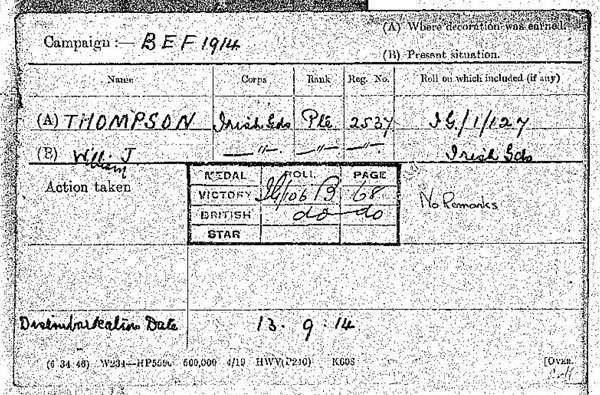 (A) Where decoration was earned.
Campaign :— B E F 1914
(B) Present situation.
Name Corps Rank Reg. No. Roll on which included (if any)
(A) THOMPSON Irish Gds Pte 2537 IG/1/127
(B) William J —"— —"— —"— Irish Gds
Action taken
MEDAL ROLL PAGE
VICTORY IG/106 B 68
BRITISH do do
STAR
No Remarks
Disembarkation Date 13. 9. 14
(6 34 46) W234—HP5590 500,000 4/19 HWV(P240) K608
[OVER.